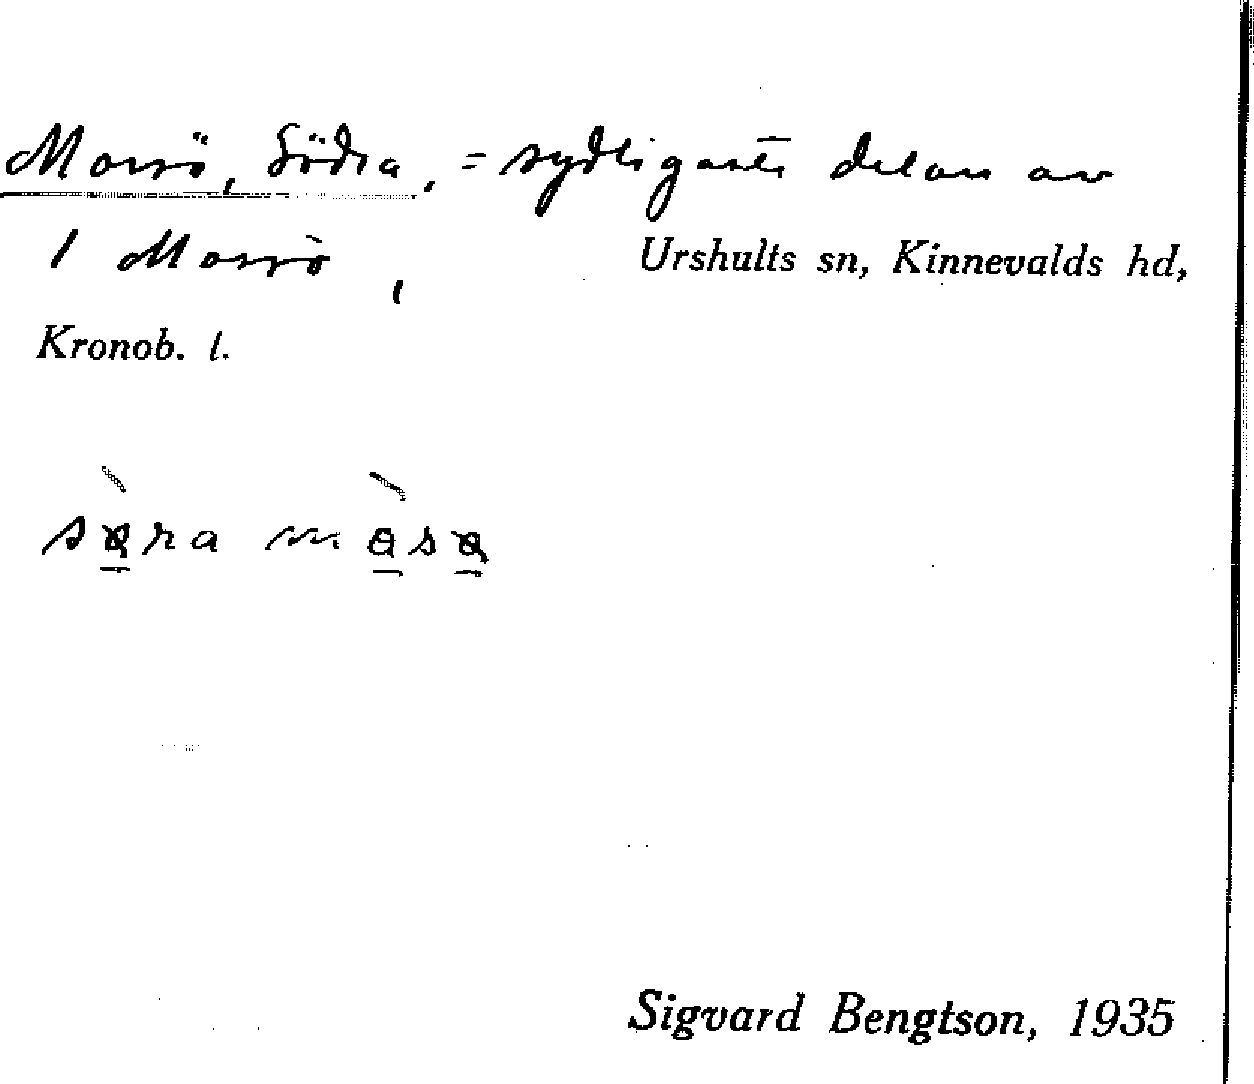 Morsö, Södra, = sydligaste delen av
1 Morsö,
Urshults sn, Kinnevalds hd,
Kronob. l.
Sigvard Bengtson, 1935